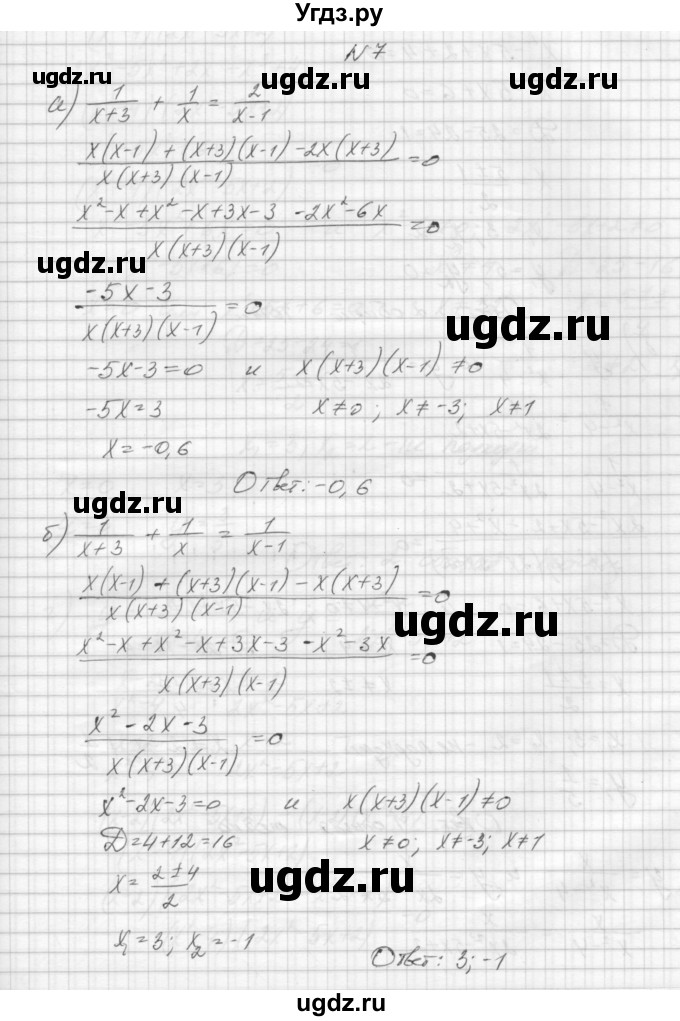 Угдз.ру
N 7
ugdz.ru ugdz.ru
а) 1/(x+3) + 1/x = 2/(x-1)
(x(x-1) + (x+3)(x-1) - 2x(x+3))/(x(x+3)(x-1)) = 0
(x² - x + x² - x + 3x - 3 - 2x² - 6x)/(x(x+3)(x-1)) = 0
ugdz.ru
(-5x - 3)/(x(x+3)(x-1)) = 0
ugdz.ru
-5x - 3 = 0 и x(x+3)(x-1) ≠ 0
-5x = 3 x ≠ 0; x ≠ -3; x ≠ 1
x = -0,6
Ответ: -0,6
ugdz.ru
б) 1/(x+3) + 1/x = 1/(x-1)
(x(x-1) + (x+3)(x-1) - x(x+3))/(x(x+3)(x-1)) = 0
ugdz.ru
(x² - x + x² - x + 3x - 3 - x² - 3x)/(x(x+3)(x-1)) = 0
(x² - 2x - 3)/(x(x+3)(x-1)) = 0
x² - 2x - 3 = 0 и x(x+3)(x-1) ≠ 0
Д = 4 + 12 = 16 x ≠ 0; x ≠ -3; x ≠ 1
x = (2 ± 4)/2
ugdz.ru
x₁ = 3; x₂ = -1
Ответ: 3; -1
ugdz.ru